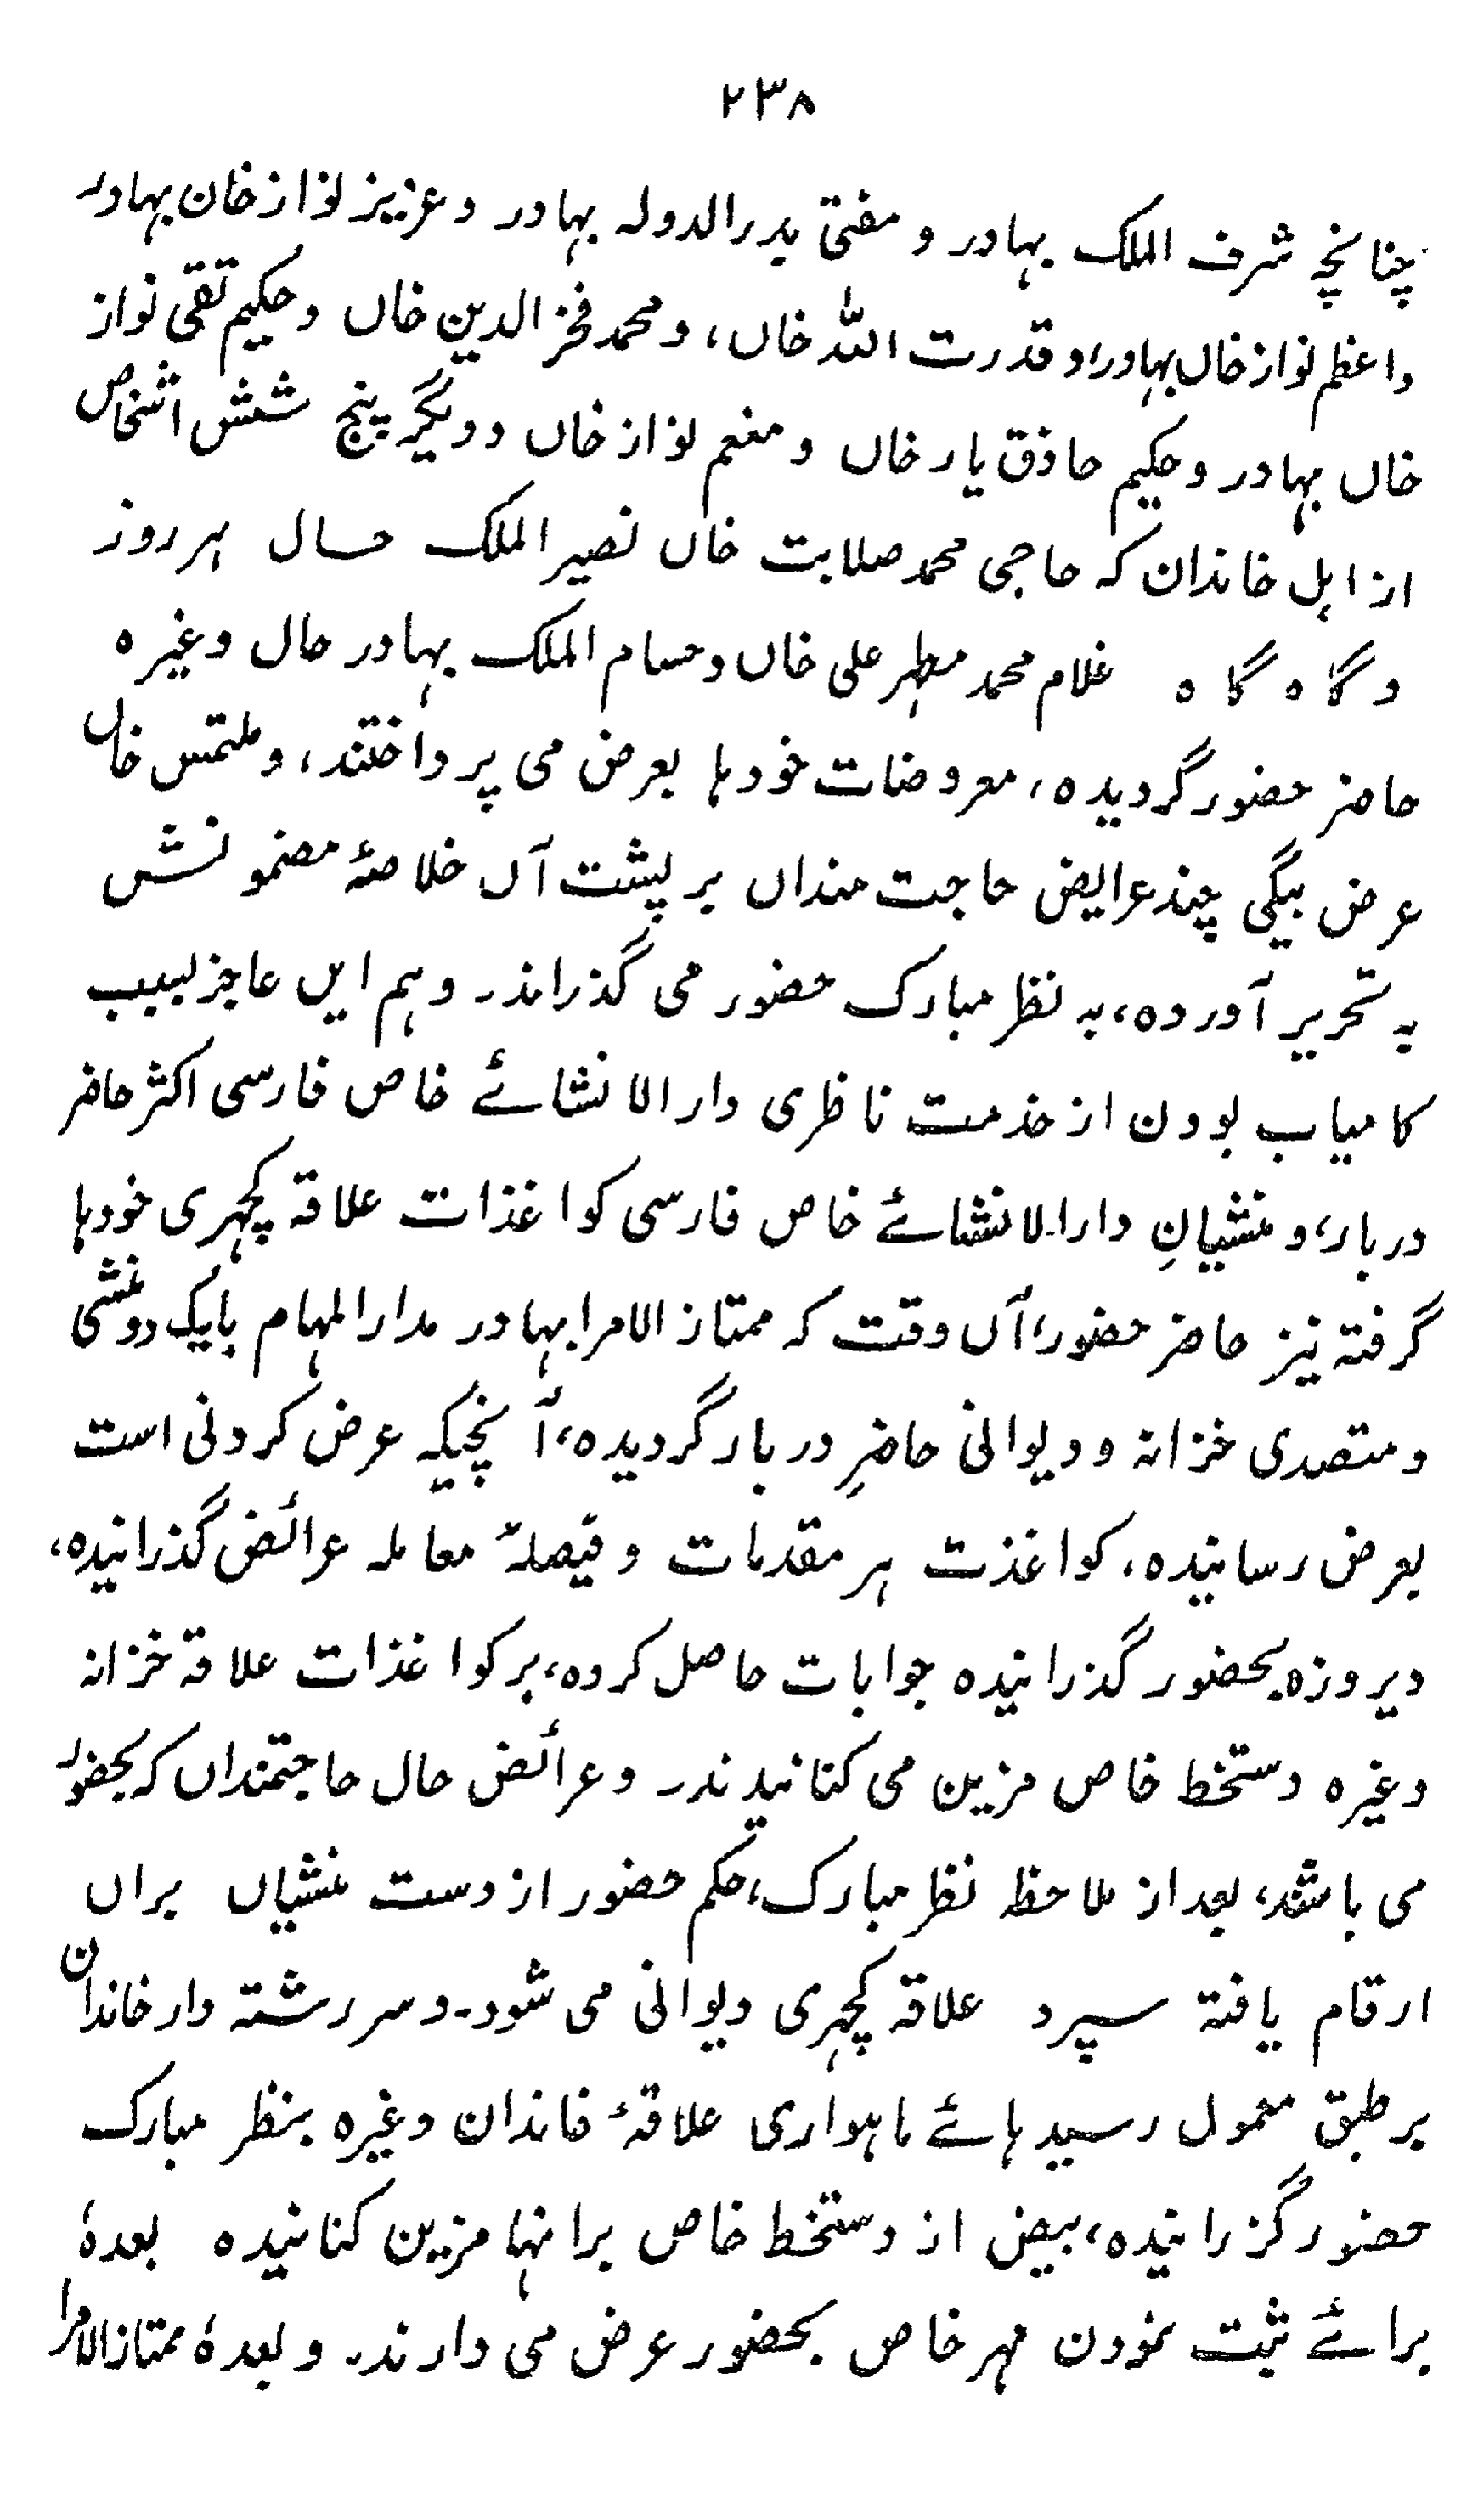 ۲۳۸
چنانچہ شرف الملک بہادر و مفتی بدرالدولہ بہادر و عزیز نواز خان بہادر
و اعظم نواز خاں بہادر، و قدرت اللہ خاں، و محمد فخرالدین خاں و حکیم تقی نواز
خاں بہادر و حکیم حاذق یار خاں و منعم نواز خاں و دیگر پنج شش اشخاص
از اہل خاندان کہ حاجی محمد صلابت خاں نصیر الملک حسال ہر روز
و گاہ گاہ غلام محمد مطہر علی خاں و حسام الملک بہادر حال وغیرہ
حاضر حضور گردیدہ، معروضات خودہا بعرض می پرداختند، و ملتمس خاں
عرض بیگی چند عرایض حاجت منداں بر پشت آں خلاصۂ مضمونش
بہ تحریر آوردہ، بہ نظر مبارک حضور می گذراند۔ و ہم ایں عاجز بسبب
کامیاب بودن از خدمت ناظری دار الانشائے خاص فارسی اکثر حاضر
دربار، و منشیانِ دارالانشائے خاص فارسی کواغذات علاقہ کچہری خودہا
گرفتہ نیز حاضر حضور، آں وقت کہ ممتاز الامرا بہادر مدارالمہام بایک دو منشی
و متصدی خزانہ و دیوانی حاضرِ دربار گردیدہ، آنچیکہ عرض کردنی است
بعرض رسانیدہ، کواغذت ہر مقدمات و فیصلۂ معاملہ عرائض گذرانیدہ،
دیروزہ بحضور گذرانیدہ جوابات حاصل کردہ، بر کواغذات علاقہ خزانہ
وغیرہ دستخط خاص مزین می کنانیدند۔ و عرائض حال حاجتمنداں کہ بحضور
می باشد، بعد از ملاحظ نظر مبارک، حکم حضور از دست منشیاں براں
ارقام یافتہ سپرد علاقہ کچہری دیوانی می شود۔ و سررشتہ دار خاندان
بر طبق معمول رسید ہائے ماہواری علاقۂ خاندان وغیرہ بنظر مبارک
حضور گزرانیدہ، بعض از دستخط خاص برانہا مزین کنانیدہ بعدہٗ
برائے ثبت نمودن مہر خاص بحضور عرض می دارند۔ و بعدہٗ ممتاز الامرا